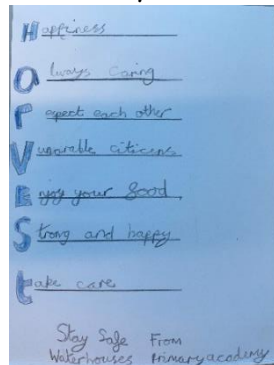 Happiness
always caring
respect each other
Vunarable citicens
Enjoy your food
Strong and happy
take care
Stay Safe From
Waterhouses Primary academy